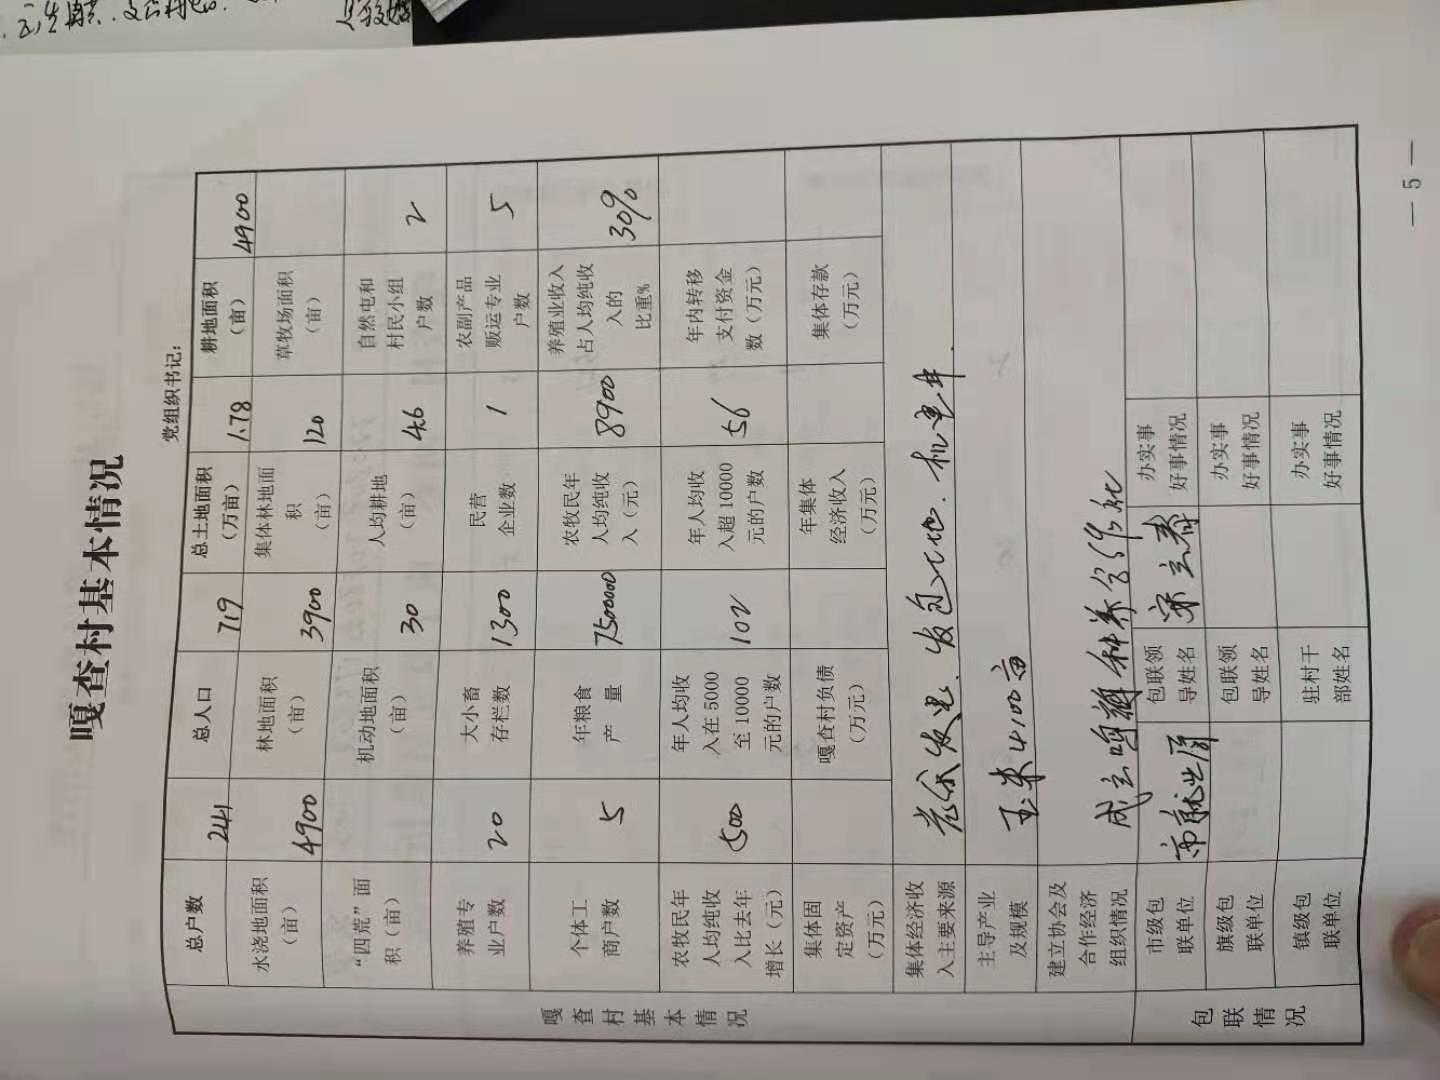 嘎查村基本情况
党组织书记：
嘎查村基本情况
总户数 241 总人口 719 总土地面积（万亩） 1.78 耕地面积（亩） 4900
水浇地面积（亩） 4900 林地面积（亩） 3900 集体林地面积（亩） 120 草牧场面积（亩）
“四荒”面积（亩） 机动地面积（亩） 30 人均耕地（亩） 4.6 自然屯和村民小组户数 2
养殖专业户数 20 大小畜存栏数 1300 民营企业数 1 农副产品贩运专业户数 5
个体工商户数 5 年粮食产量 7500000 农牧民年人均纯收入（元） 8900 养殖业收入占人均纯收入的比重% 30%
农牧民年人均纯收入比去年增长（元） 500 年人均收入在5000至10000元的户数 102 年人均收入超10000元的户数 56 年内转移支付资金数（万元）
集体固定资产（万元） 嘎查村负债（万元） 年集体经济收入（万元） 集体存款（万元）
集体经济收入主要来源 光伏发电、发包土地、机电井.
主导产业及规模 玉米4100亩
建立协会及合作经济组织情况 成立 种养合作社
包联情况
市级包联单位 市就业局 包联领导姓名 宋立春 办实事好事情况
旗级包联单位 包联领导姓名 办实事好事情况
镇级包联单位 驻村干部姓名 办实事好事情况
— 5 —